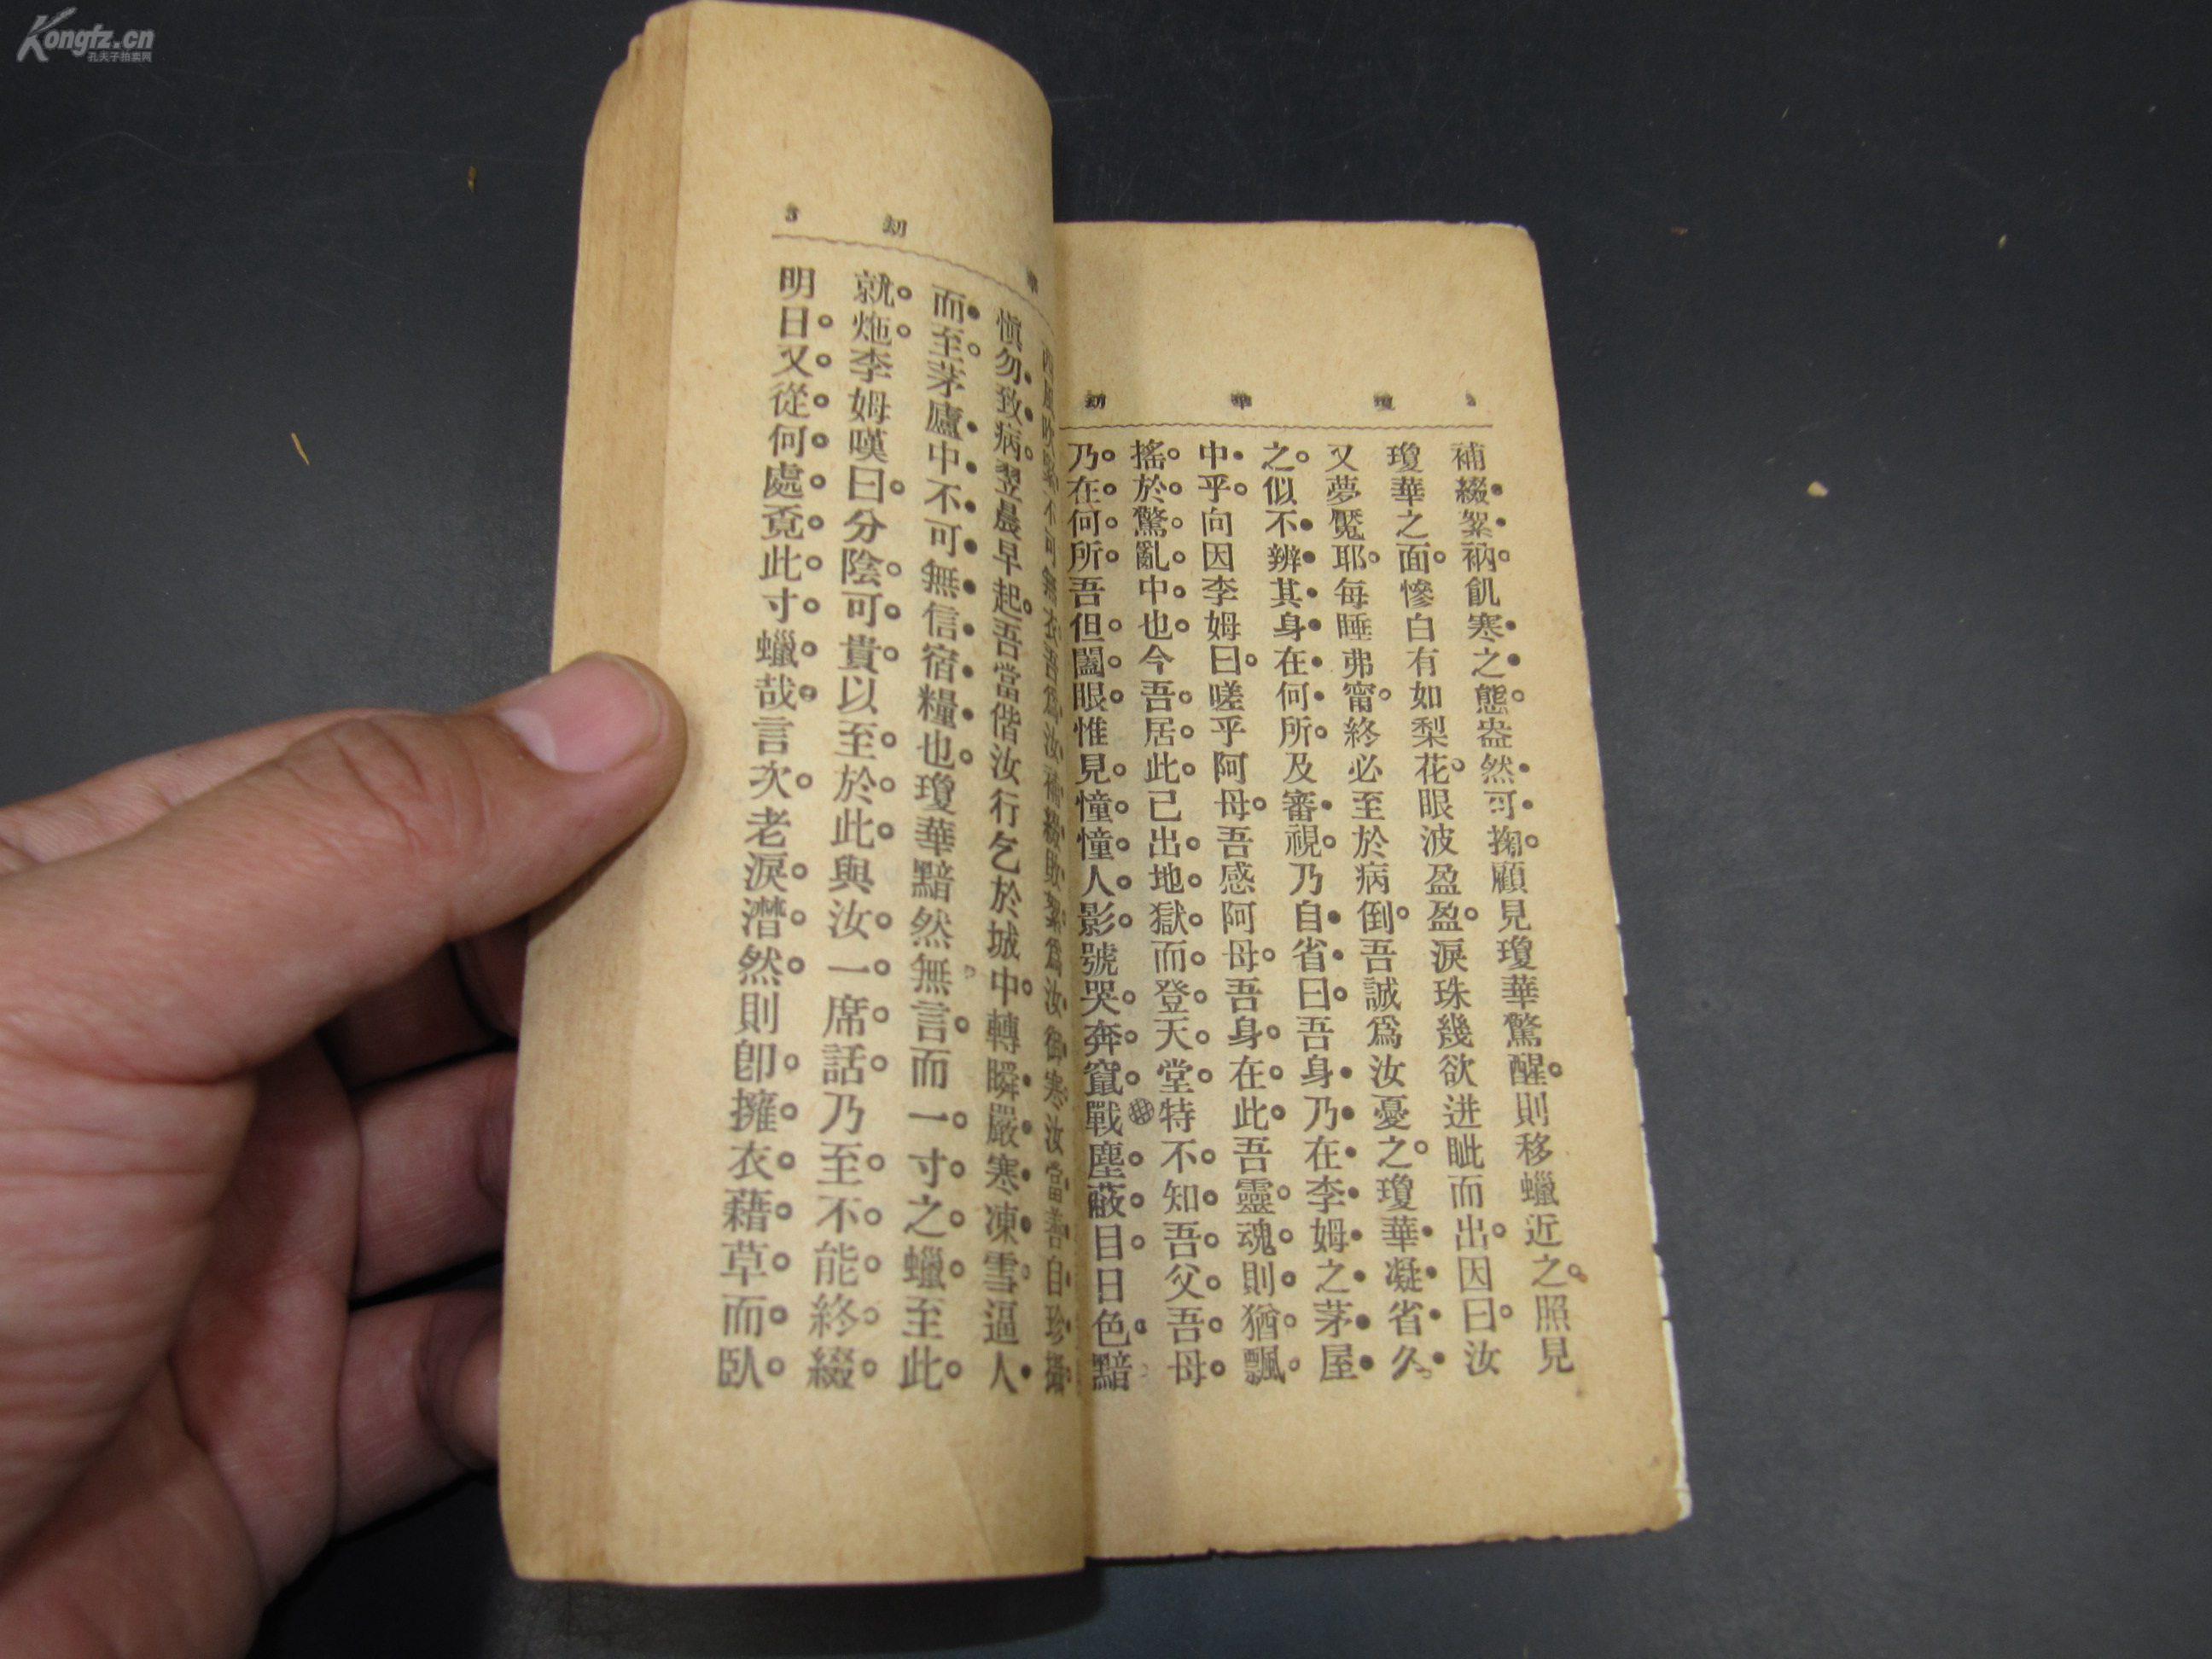 Kongfz.cn
孔夫子拍卖网
2 瓊華劫
補綴絮衲。飢寒之態。盎然可掬。顧見瓊華驚醒。則移蠟近之。照見
瓊華之面。慘白有如梨花。眼波盈盈。淚珠幾欲迸眦而出。因曰。汝
又夢魘耶。每睡弗甯。終必至於病倒。吾誠爲汝憂之。瓊華凝省久
之。似不辨其身在何所。及審視。乃自省曰。吾身乃在李姆之茅屋
中乎。向因李姆曰。嗟乎阿母。吾感阿母。吾身在此。吾靈魂則猶飄
搖於驚亂中也。今吾居此。已出地獄而登天堂。特不知吾父吾母
乃在何所。吾但闔眼。惟見憧憧人影。號哭奔竄。戰塵蔽目。日色黯
華劫 3
不可無衣吾爲汝補綴敗絮爲汝御寒汝當善自珍攝
慎勿致病。翌晨早起。吾當偕汝行乞於城中。轉瞬嚴寒凍雪逼人
而至。茅廬中不可無信宿糧也。瓊華黯然無言。而一寸之蠟至此
就炧。李姆嘆曰。分陰可貴。以至於此。與汝一席話。乃至不能終綴
明日又從何處覓此寸蠟哉。言次。老淚潸然。則卽擁衣藉草而臥